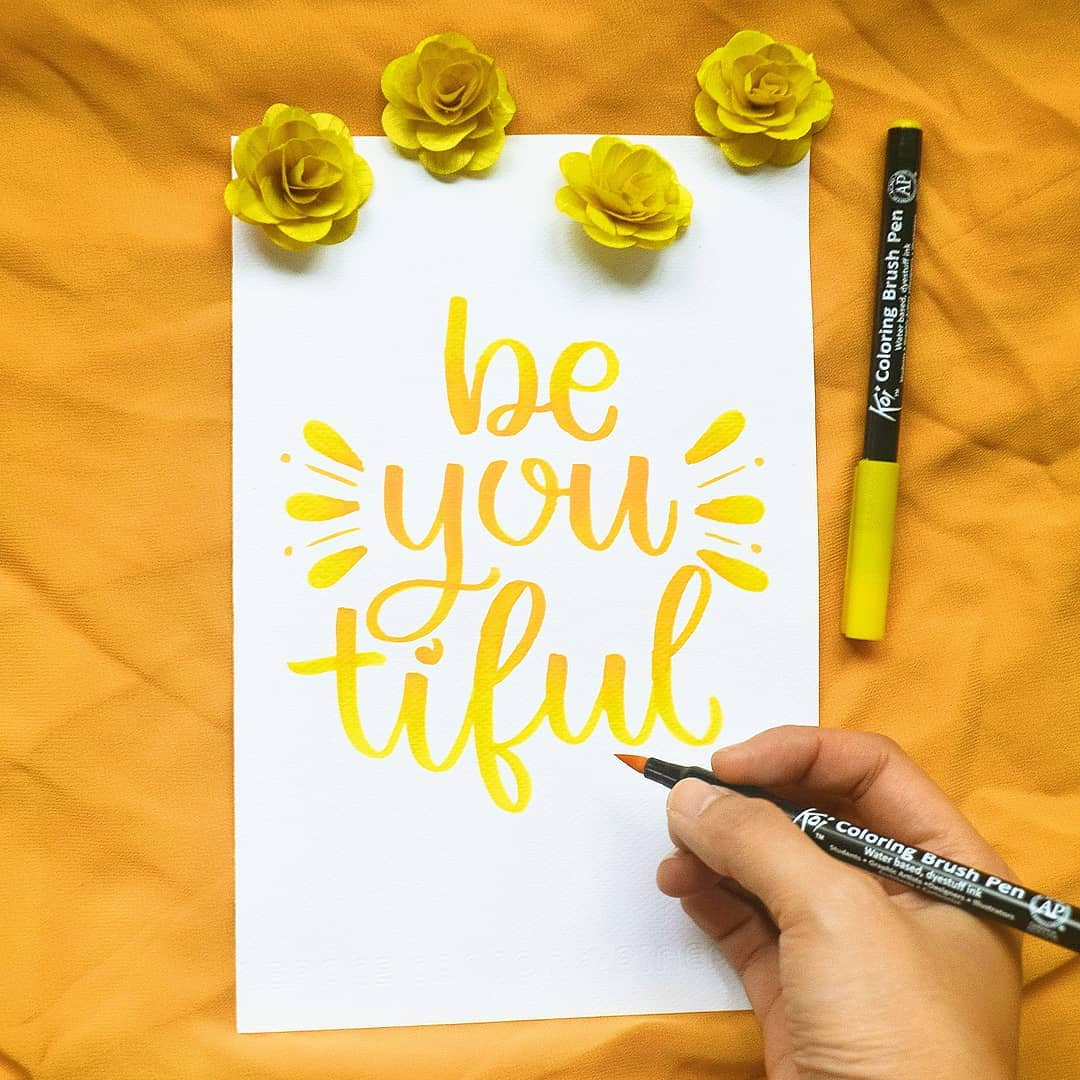 be
you
tiful
Koi™ Coloring Brush Pen
Water based, dyestuff ink
AP
Koi™ Coloring Brush Pen
Water based, dyestuff ink
Students • Graphic Artists • Designers • Illustrators
AP